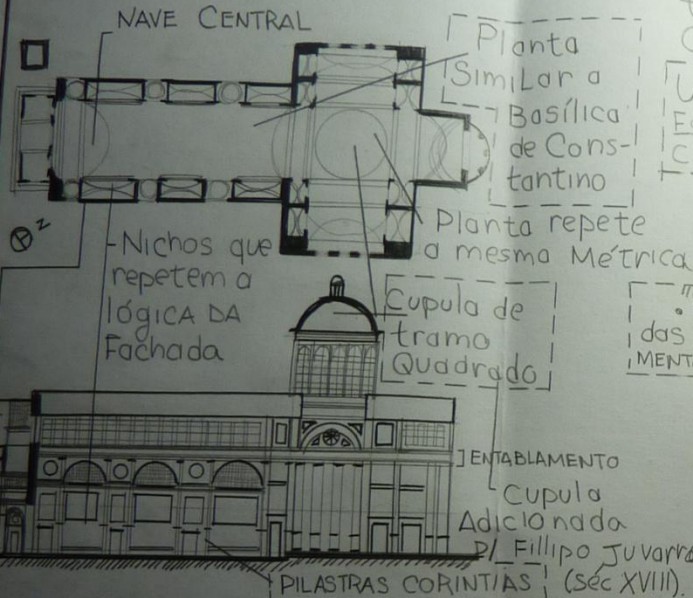 NAVE CENTRAL
Planta
Similar a
Basílica
de Cons-
tantino
Planta repete
a mesma Métrica
N
-Nichos que
repetem a
lógica DA
Fachada
Cupula de
tramo
Quadrado
das
MENT
ENTABLAMENTO
Cupula
Adicionada
p/ Fillipo Juvarra
(séc XVIII).
PILASTRAS CORINTIAS